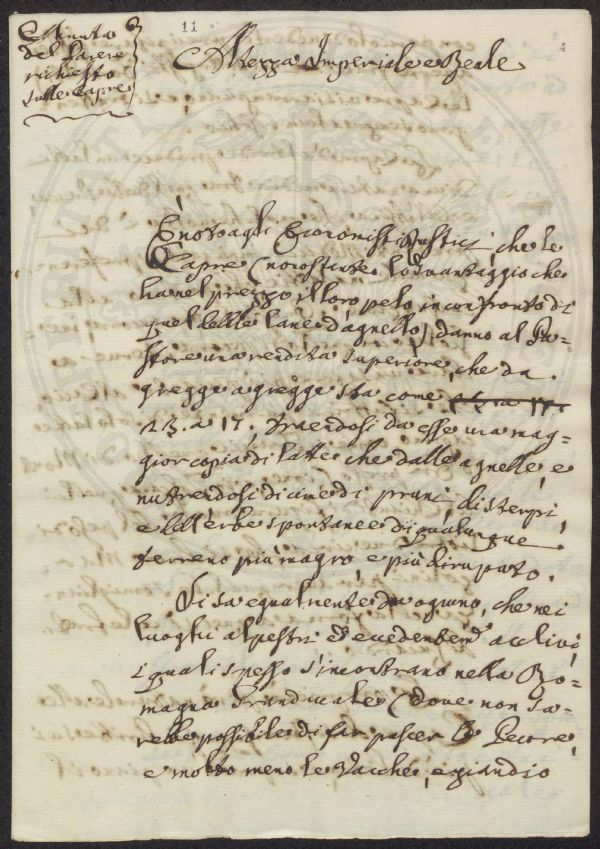 11
4
Minuta
del Parere
richiesto
sulle Capre
Altezza Imperiale e Reale
È noto agli Economisti Rustici, che le
Capre (nonostante lo svantaggio che
ha nel prezzo il loro pelo in confronto di
quel delle lane d'agnello) danno al Pa-
store una rendita superiore, che da
gregge a gregge sta come
23. a 17, traendosi da esse una mag-
gior copia di latte che dalle agnelle, e
nutrendosi di cime di pruni, di sterpi,
e dell'erbe spontanee di qualunque
terreno più magro, e più dirupato.
Si sa egualmente da ognuno, che nei
luoghi alpestri ed eccedentem.te acclivi,
i quali spesso s'incontrano nella Ro-
magna Granducale (dove non sa-
rebbe possibile di far pascer le Pecore,
e molto meno le Vacche, eziandio